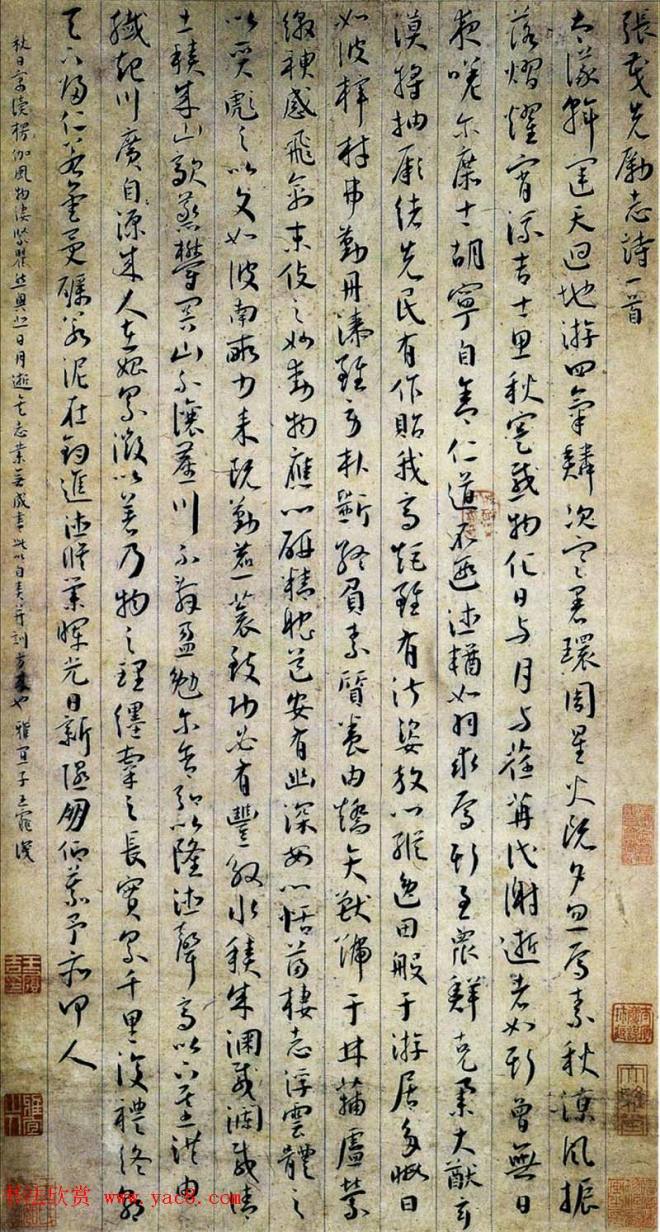 張茂先勵志詩一首
大儀斡運天迴地游四氣鱗次寒暑環周星火既夕忽焉素秋涼風振
落熠燿宵流吉士思秋寔感物化日与月与荏苒代謝逝者如斯曾無日
夜嗟尔庶士胡寧自舍仁道不遐德輶如羽求焉斯至眾鮮克舉大猷玄
漠將抽厥緒先民有作貽我高矩雖有淑姿放心縱逸田般于游居多暇日
如彼梓材弗勤丹漆雖勞朴斲終負素質養由矯矢獸號于林蒲盧縈
繳神感飛禽末伎之妙動物應心研精耽道安有幽深安心恬蕩棲志浮雲體之
以質彪之以文如彼南畝力耒既勤藨蓘致功必有豐殷水積成淵載瀾載清
土積成山歊蒸鬱冥山不讓塵川不辭盈勉尔含弘以隆德聲高以下基洪由
纖起川廣自源成人在始累微以著乃物之理纆牽之長實累千里復禮終朝
天下歸仁若金受礪若泥在鈞進德脩業暉光日新隰朋仰慕予亦何人
秋日讀楞伽風物淒緊瞿然興悲日月逝矣志業無成書此以自責并訓也雅宜子王寵識
书法欣赏 www.yac8.com